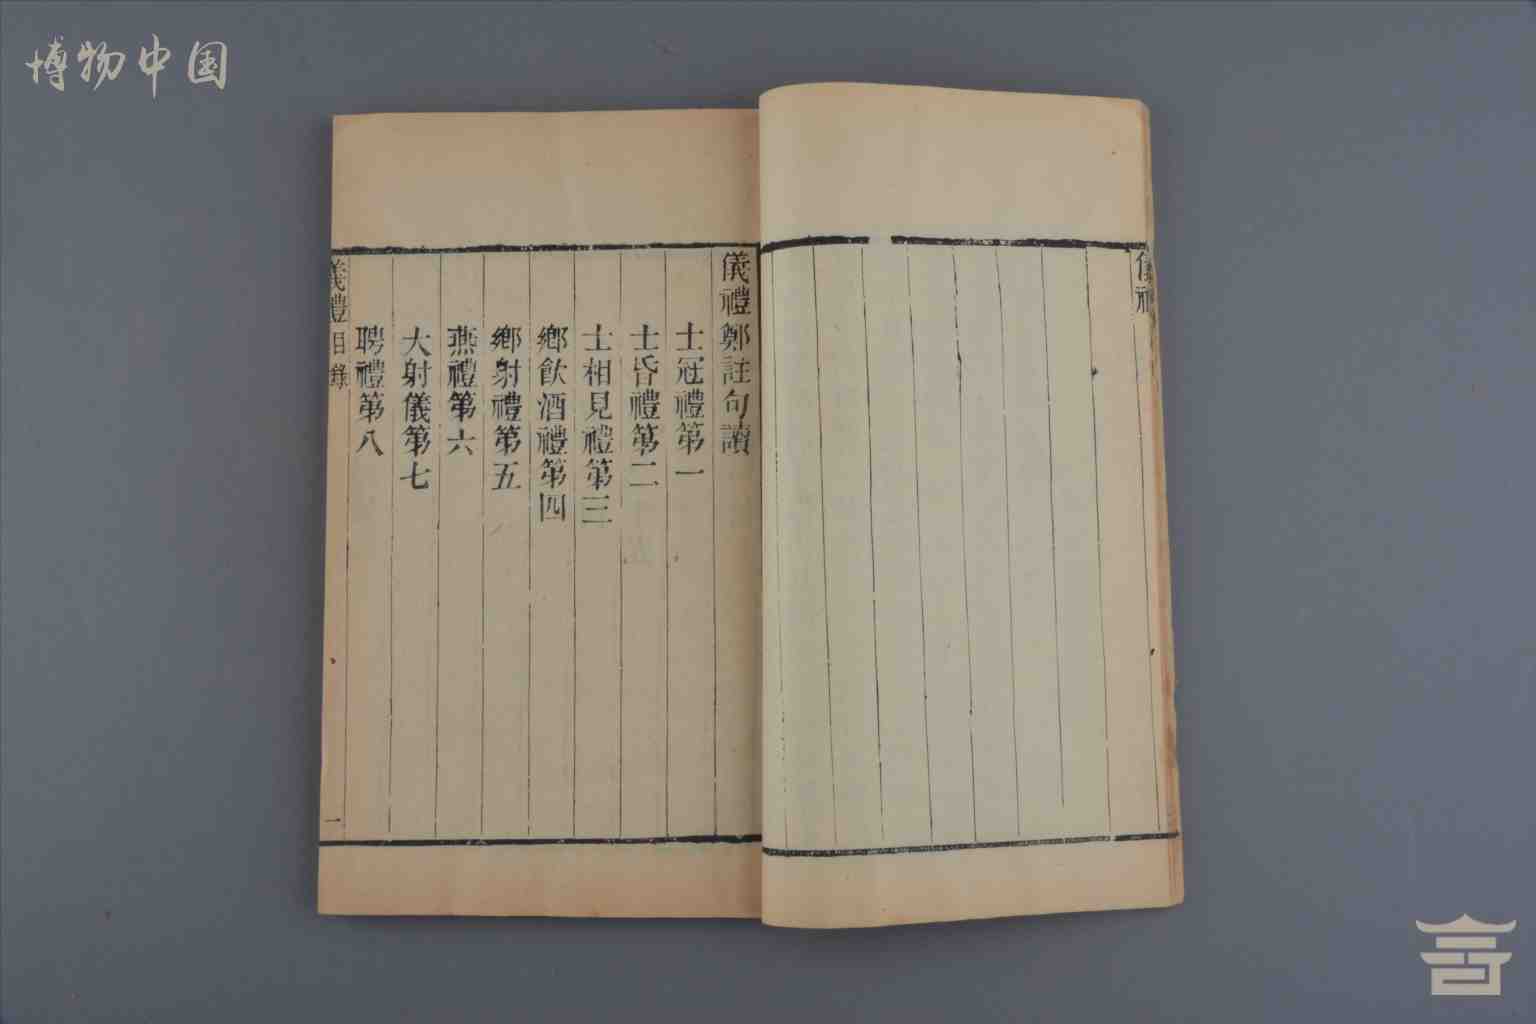 博物中国
儀禮
儀禮鄭註句讀
士冠禮第一
士昏禮第二
士相見禮第三
鄉飲酒禮第四
鄉射禮第五
燕禮第六
大射儀第七
聘禮第八
儀禮目錄
一